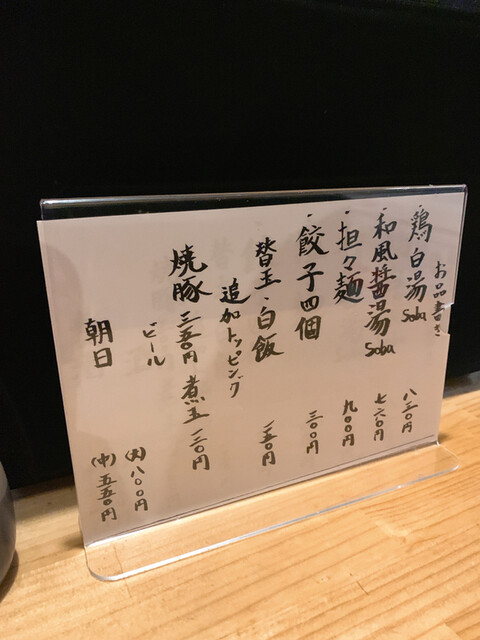 お品書き
・鶏白湯 Soba 八三〇円
・和風醤湯 Soba 七六〇円
・担々麺 九〇〇円
・餃子四個 三〇〇円
替玉・白飯 一五〇円
追加トッピング
焼豚 三五〇円 煮玉 一二〇円
ビール
(大) 八〇〇円
朝日 (中) 五五〇円